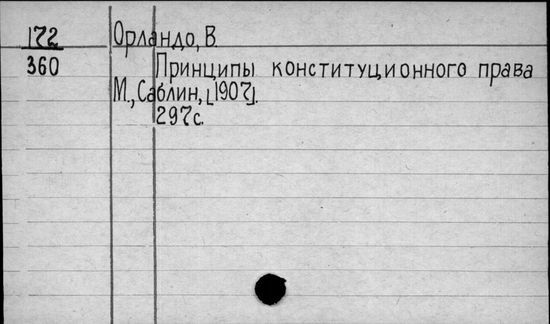 172 Орландо, В.
360 Принципы конституционного права
М., Саблин, [1907].
297с.